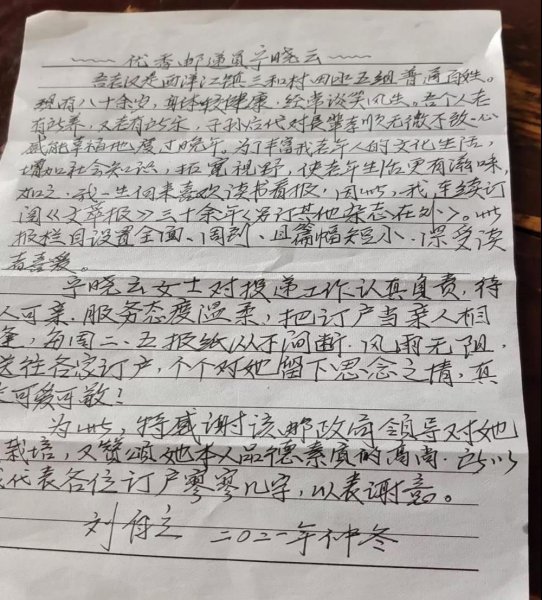 优秀邮递员宁晓云
吾老汉是两津江镇三和村四区五组普通百姓。
现有八十余岁，身体较健康，经常谈笑风生。吾个人老
有所养，又老有所乐，子孙后代对长辈孝顺无微不致，心
感能幸福地度过晚年。为了丰富我老年人的文化生活，
增加社会知识，拓宽视野，使老年生活更有滋味，
加之，我一生伯来喜欢读书看报，因此，我连续订
阅《文萃报》三十余年《另订其他杂志在外》。此
报栏目设置全面、周到、且篇幅短小、深受读
者喜爱。
宁晓云女士对投递工作认真负责，待
人可亲，服务态度温柔，把订户当亲人相
逢，每周二、五报纸从不间断，风雨无阻，
送往各家订户，个个对她留下思念之情，真
可爱可敬！
为此，特感谢该邮政局领导对她
栽培，又赞颂她本人品德素质的高尚，所以
代表各位订户寥寥几字，以表谢意。
刘 二〇二一年仲冬